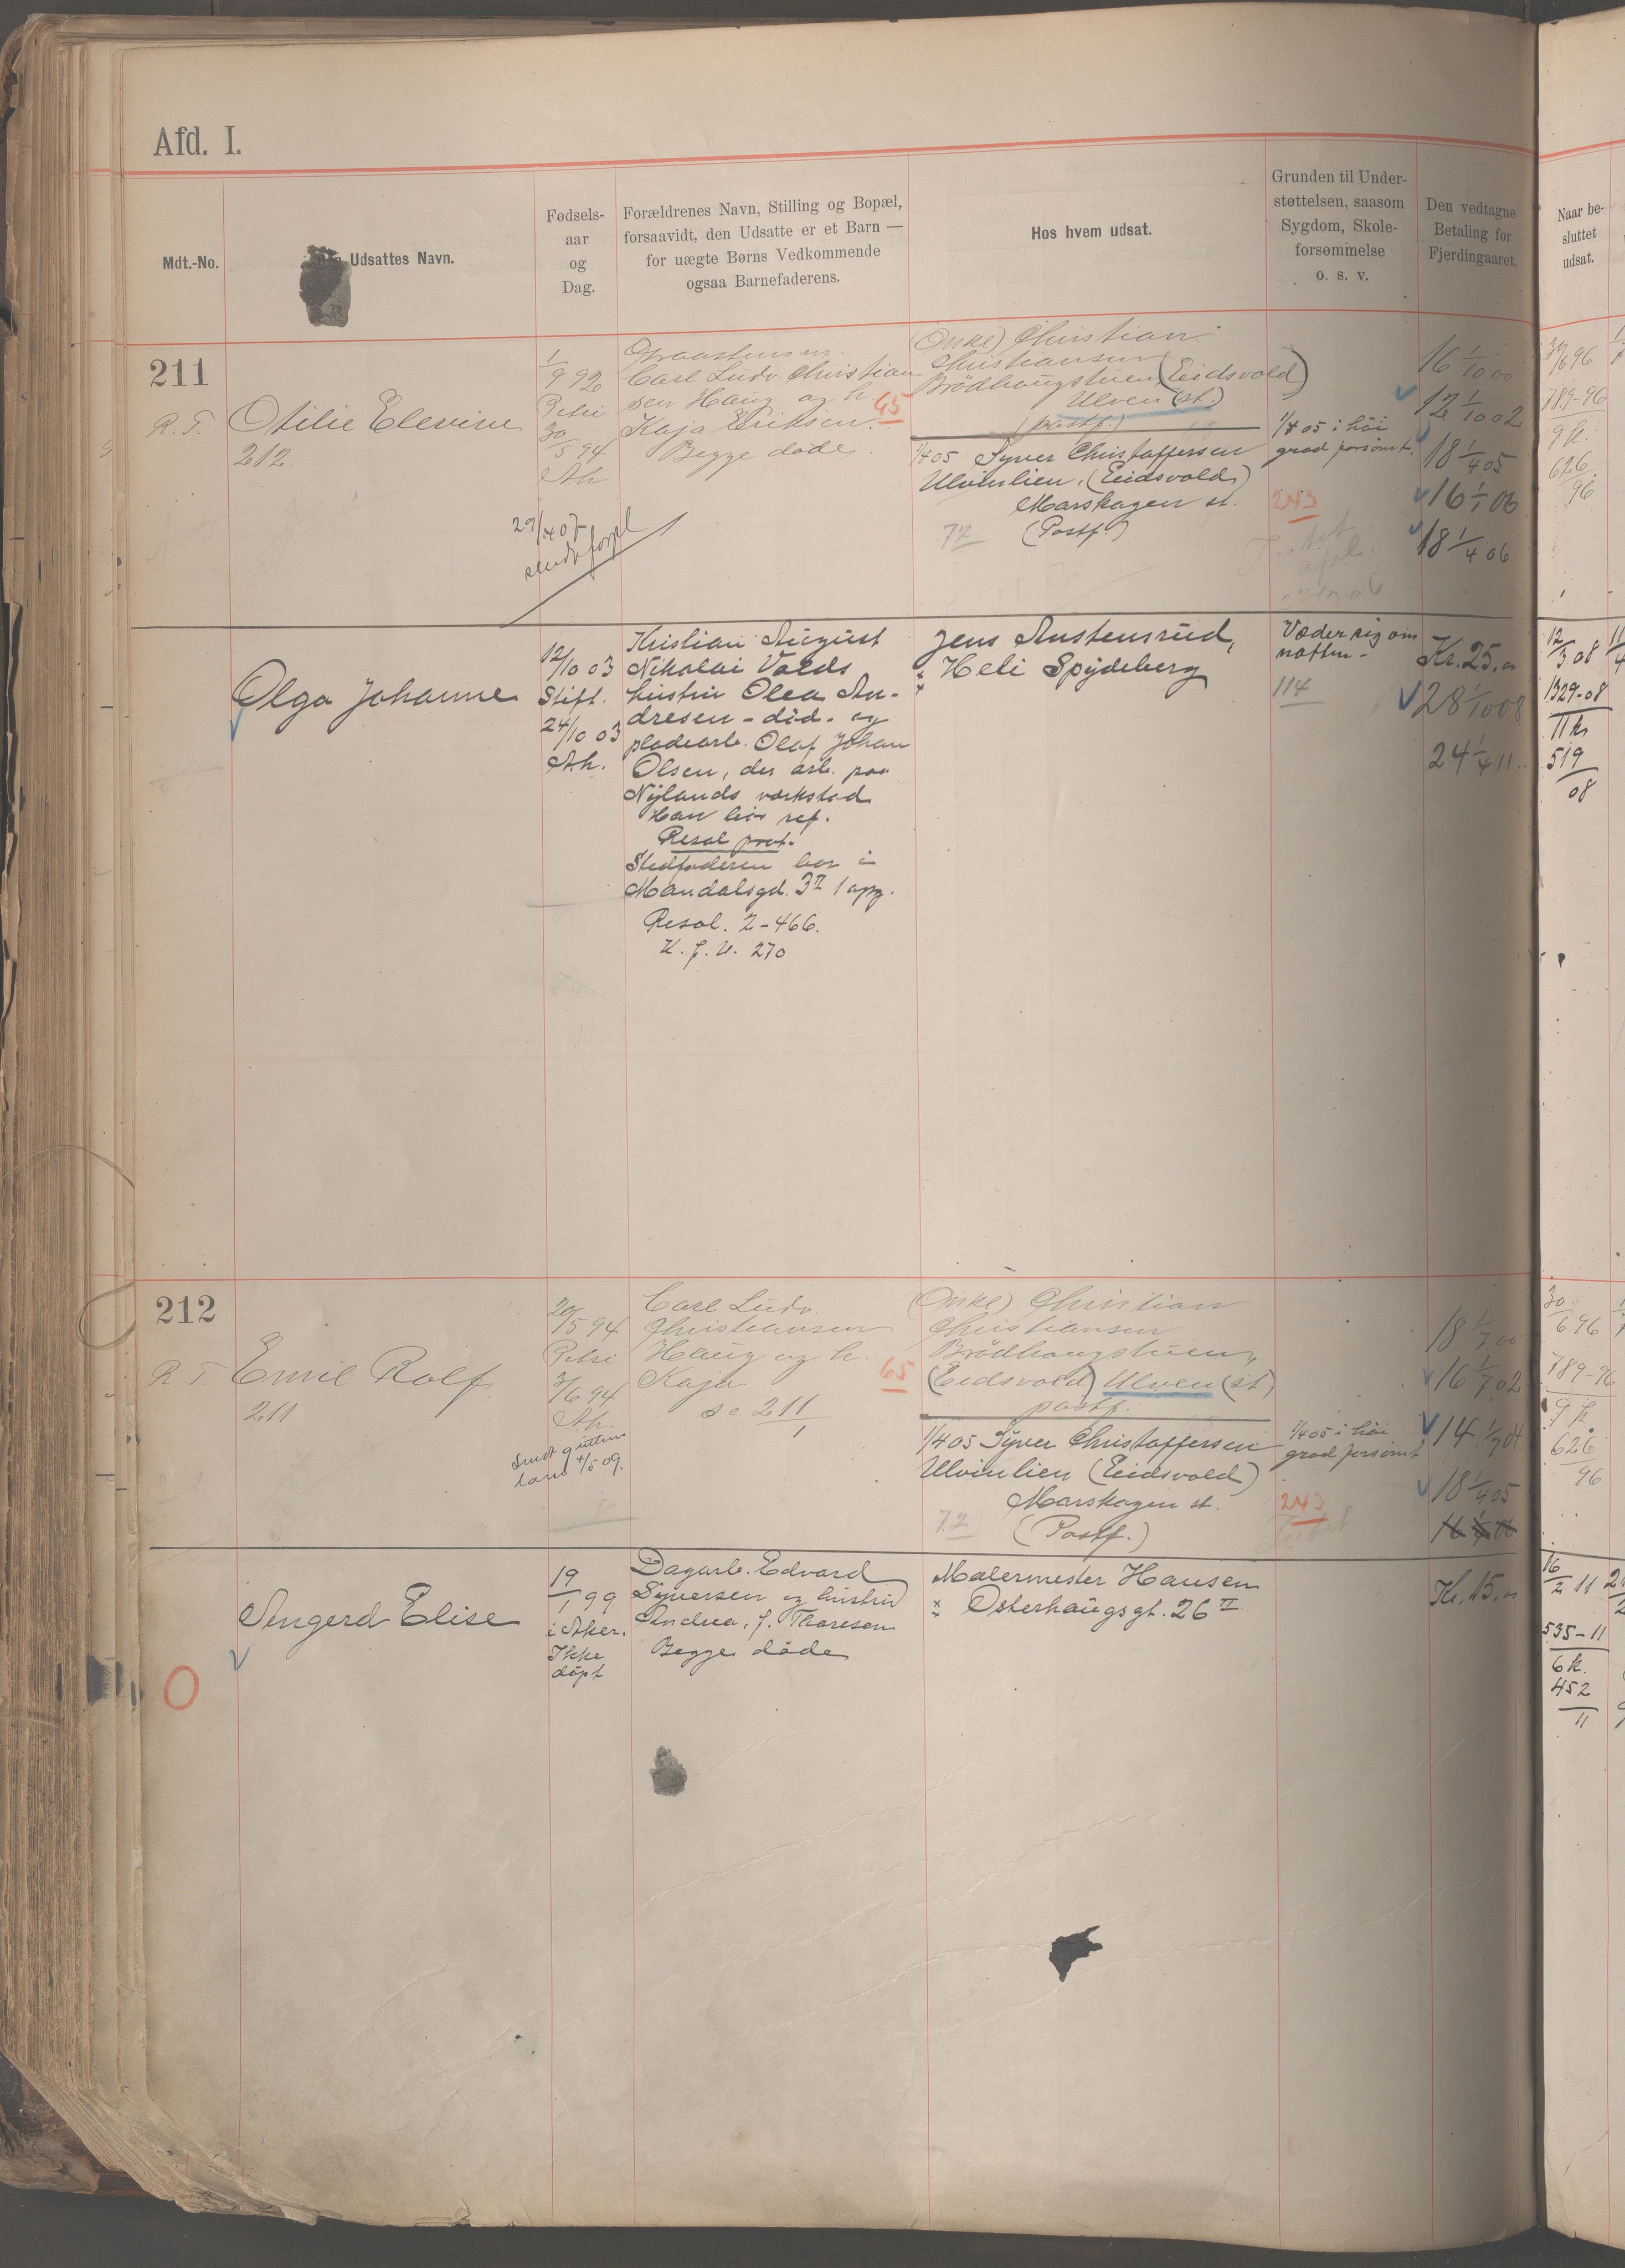 Afd. I.
Mdt.-No.
Udsattes Navn.
Fødsels-
aar
og
Dag.
Forældrenes Navn, Stilling og Bopæl,
forsaavidt, den Udsatte er et Barn —
for uægte Børns Vedkommende
ogsaa Barnefaderens.
Hos hvem udsat.
Grunden til Under-
støttelsen, saasom
Sygdom, Skole-
forsømmelse
o. s. v.
Den vedtagne
Betaling for
Fjerdingaaret.
Naar be-
sluttet
udsat.
211
R. T.
Otilie Elevine
212.
1/9 92
Petri
30/5 94
Ah
29/4 07
Carl Ludv. Christian
sen Haug og h.
Kaja Eriksen.
Begge døde.
65
(Onkel) Christian
Christiansen
Brödhaugstuen (Eidsvold)
Ulven (st.)
(postf.)
1/4 05 Syver Christoffersen
Ulvinlien. (Eidsvold)
Marskagen st.
(Postf.)
72
1/4 05 i höi
grad forsømt.
243
16 1/10 00
12 1/10 02
18 1/4 05
16 1/1 06
18 1/4 06
30/6 96
789-96
9 k.
626
96
Olga Johanne
12/10 03
Stift.
24/10 03
Ah.
Kristian August
Nikolai Volds
hustru Olea An-
dresen - död. og
pladearb. Olaf Johan
Olsen, der arb. paa
Nylands værksted
Han bør ref.
Resol prot.
Stedfaderen bor i
Mandalsgd. 3 II opg.
Resol. 2-466.
K. f. U. 270
Jens Austensrud,
Heli Spydeberg
Væder sig om
natten -
114
Kr. 25,00
28 1/10 08
24 1/4 11.
12/3 08
1329-08
11 k
519
08
212
R. T.
Emil Rolf
211
20/5 94
Petri
3/6 94
Ah.
4/5 09.
Carl Ludv.
Christiansen
Haug og h.
Kaja
se 211
65
(Onkel) Christian
Christiansen
Brödhaugstuen,
(Eidsvold) Ulven (st)
postf.
1/4 05 Syver Christoffersen
Ulvinlien (Eidsvold)
Marskagen st.
(Postf.)
72
1/4 05 i höi
grad forsömt
243
18 1/7 00
16 1/7 02
14 1/7 04
18 1/4 05
16 1/1 06
30/6 96
789-96
9 k
626
96
Angerd Elise
19/1 99
i Aker.
Ikke
döpt
Dagarb. Edvard
Syversen og hustru
Andrea, f. Thoresen
Begge döde
Malermester Hansen
Osterhaugsgt. 26 II
Kr. 15,00
16/2 11
535-11
6 k.
452
11